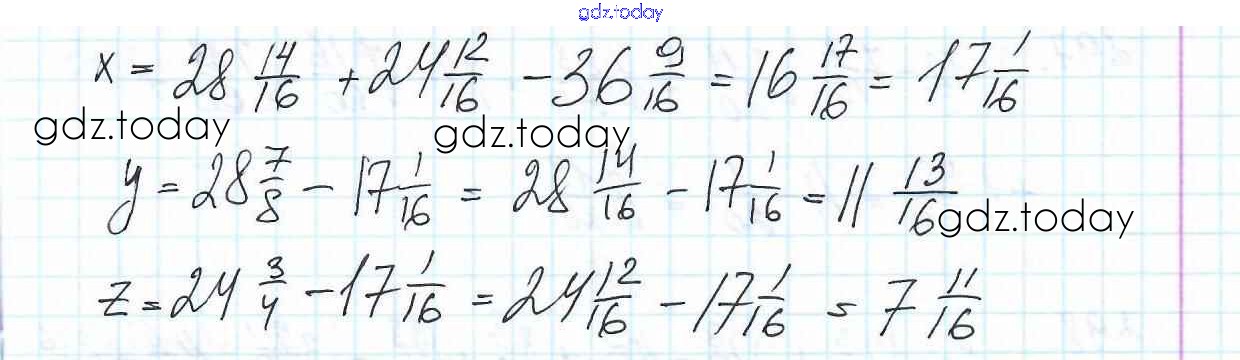 gdz.today
x = 28 14/16 + 24 12/16 - 36 9/16 = 16 17/16 = 17 1/16
gdz.today gdz.today
y = 28 7/8 - 17 1/16 = 28 14/16 - 17 1/16 = 11 13/16
gdz.today
z = 24 3/4 - 17 1/16 = 24 12/16 - 17 1/16 = 7 11/16